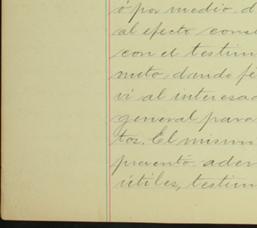 ó por medio d
al efecto cons
con el testim
nuto dando fe
vi al interesad
general para
tos. El mismo
presentó ader
útiles, testim